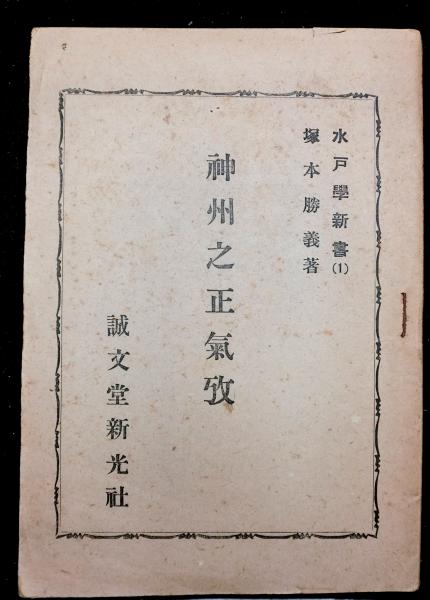 水戸學新書(1)
塚本勝義著
神州之正氣攷
誠文堂新光社